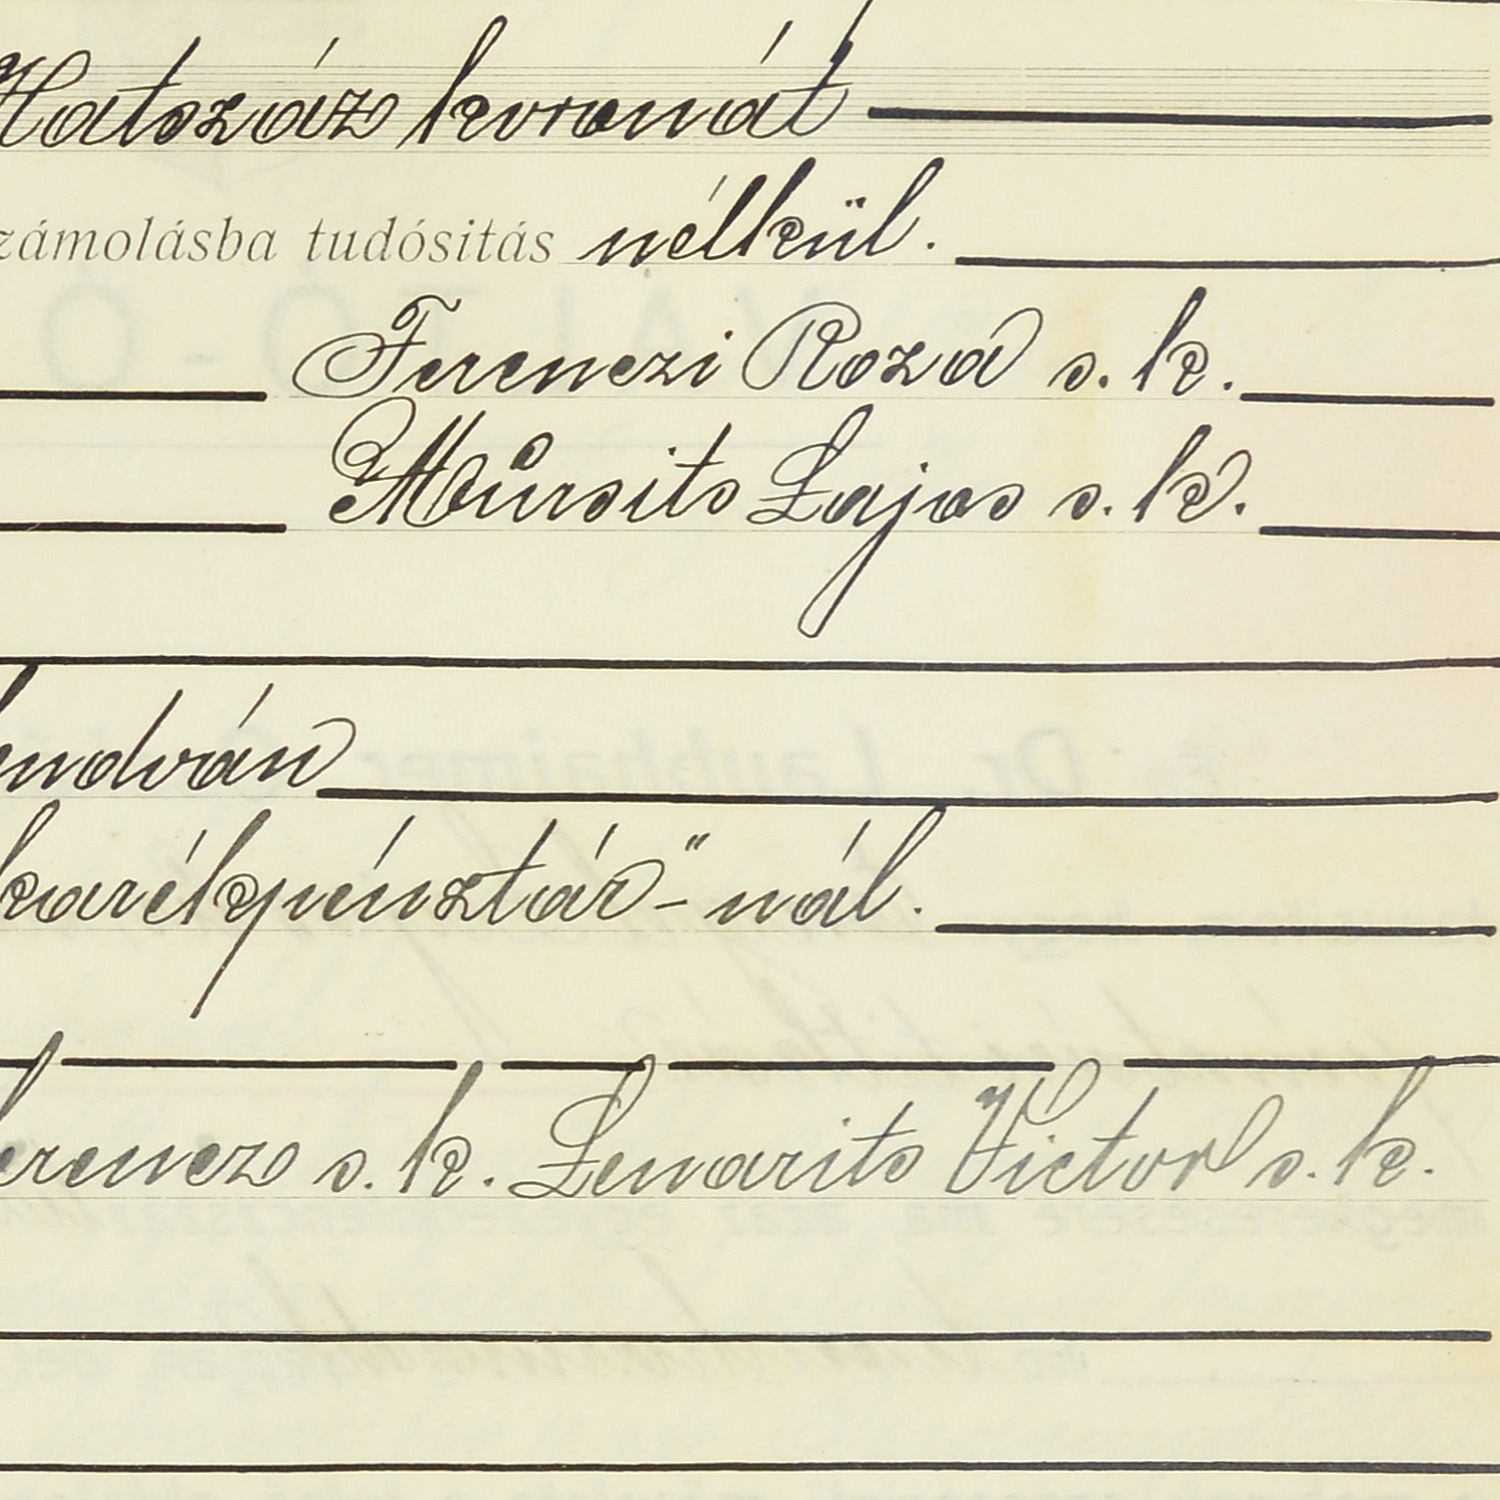 Hatszáz koronát
zámolásba tudósitás nélkül.
Ferenczi Roza s. k.
Mursits Lajos s. k.
endván
karékpénztár"-nál.
erencz s. k. Lenarits Victor s. k.